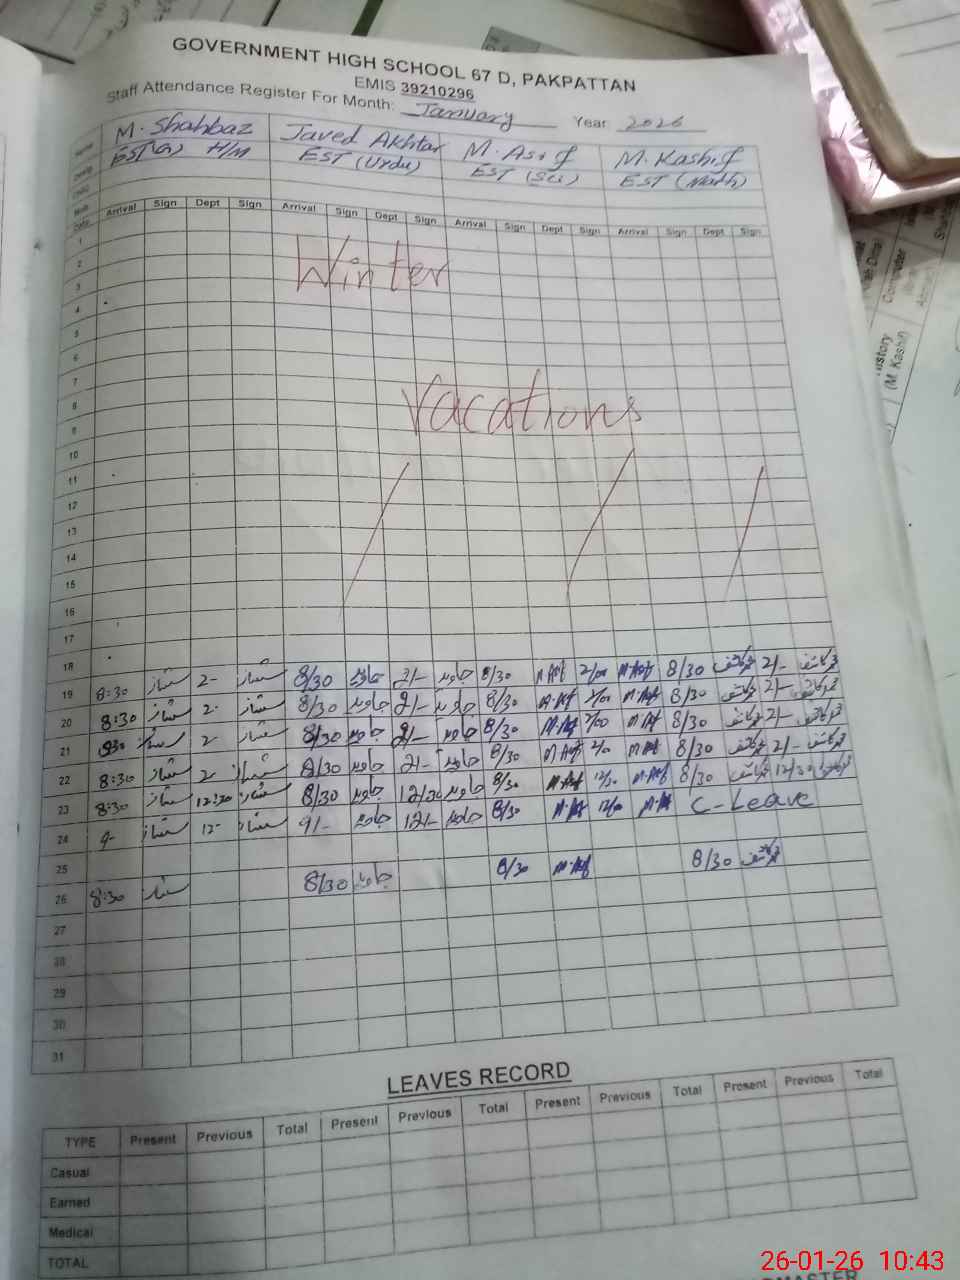 GOVERNMENT HIGH SCHOOL 67 D, PAKPATTAN
EMIS 39210296
Staff Attendance Register For Month: January Year 2026
Name M. Shahbaz Javed Akhtar M. Asif M. Kashif
Desig EST(G) H/M EST (Urdu) EST (Sci) EST (Math)
Date Arrival Sign Dept Sign Arrival Sign Dept Sign Arrival Sign Dept Sign Arrival Sign Dept Sign
1
2 Winter
3
4
5
6
7
8 Vacations
9
10
11
12
13
14
15
16
17
18
19 8:30 2- 8/30 جاوید 2/- جاوید 8/30 M.Asif 2/00 M.Asif 8/30 محمد کاشف 2/- محمد کاشف
20 8:30 2- 8/30 جاوید 2/- جاوید 8/30 M.Asif 2/00 M.Asif 8/30 محمد کاشف 2/- محمد کاشف
21 8:30 2- 8/30 جاوید 2/- جاوید 8/30 M.Asif 2/00 M.Asif 8/30 محمد کاشف 2/- محمد کاشف
22 8:30 2- 8/30 جاوید 2/- جاوید 8/30 M.Asif 2/0 M.Asif 8/30 محمد کاشف 2/- محمد کاشف
23 8:30 12:30 8/30 جاوید 12/30 جاوید 8/30 M.Asif 12/30 M.Asif 8/30 محمد کاشف 12/30 محمد کاشف
24 9- 12- 9/- جاوید 12/- جاوید 8/30 M.Asif 12/00 M.Asif C-Leave
25
26 8:30 8/30 جاوید 8/30 M.Asif 8/30 محمد کاشف
27
28
29
30
31
LEAVES RECORD
TYPE Present Previous Total Present Previous Total Present Previous Total Present Previous Total
Casual
Earned
Medical
TOTAL
26-01-26 10:43
Computer
(M. Kashif)